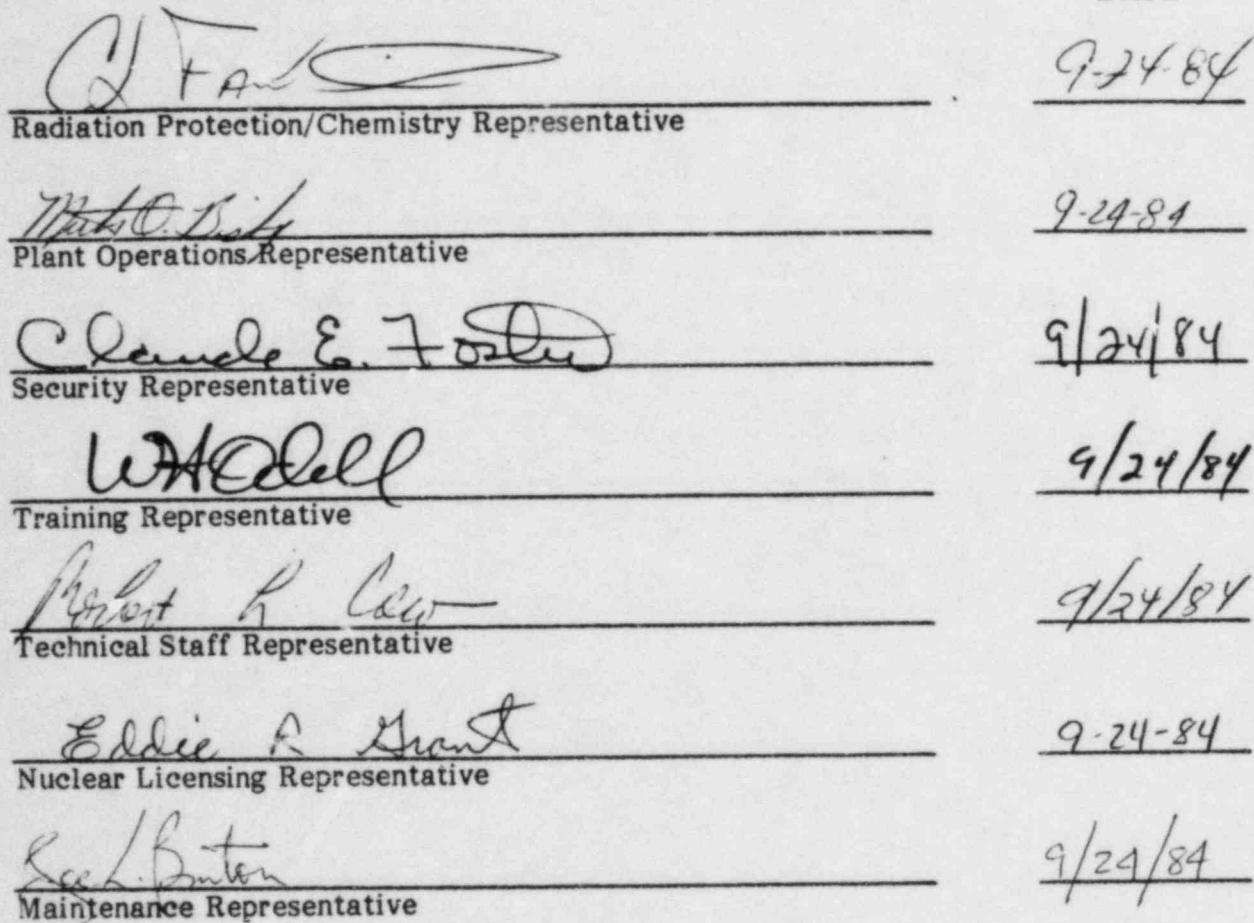 9-24-84
Radiation Protection/Chemistry Representative
9-24-84
Plant Operations Representative
Claude E. Foster 9/24/84
Security Representative
W H Odell 9/24/84
Training Representative
Robert 9/24/84
Technical Staff Representative
Eddie R Grant 9-24-84
Nuclear Licensing Representative
L. Burton 9/24/84
Maintenance Representative